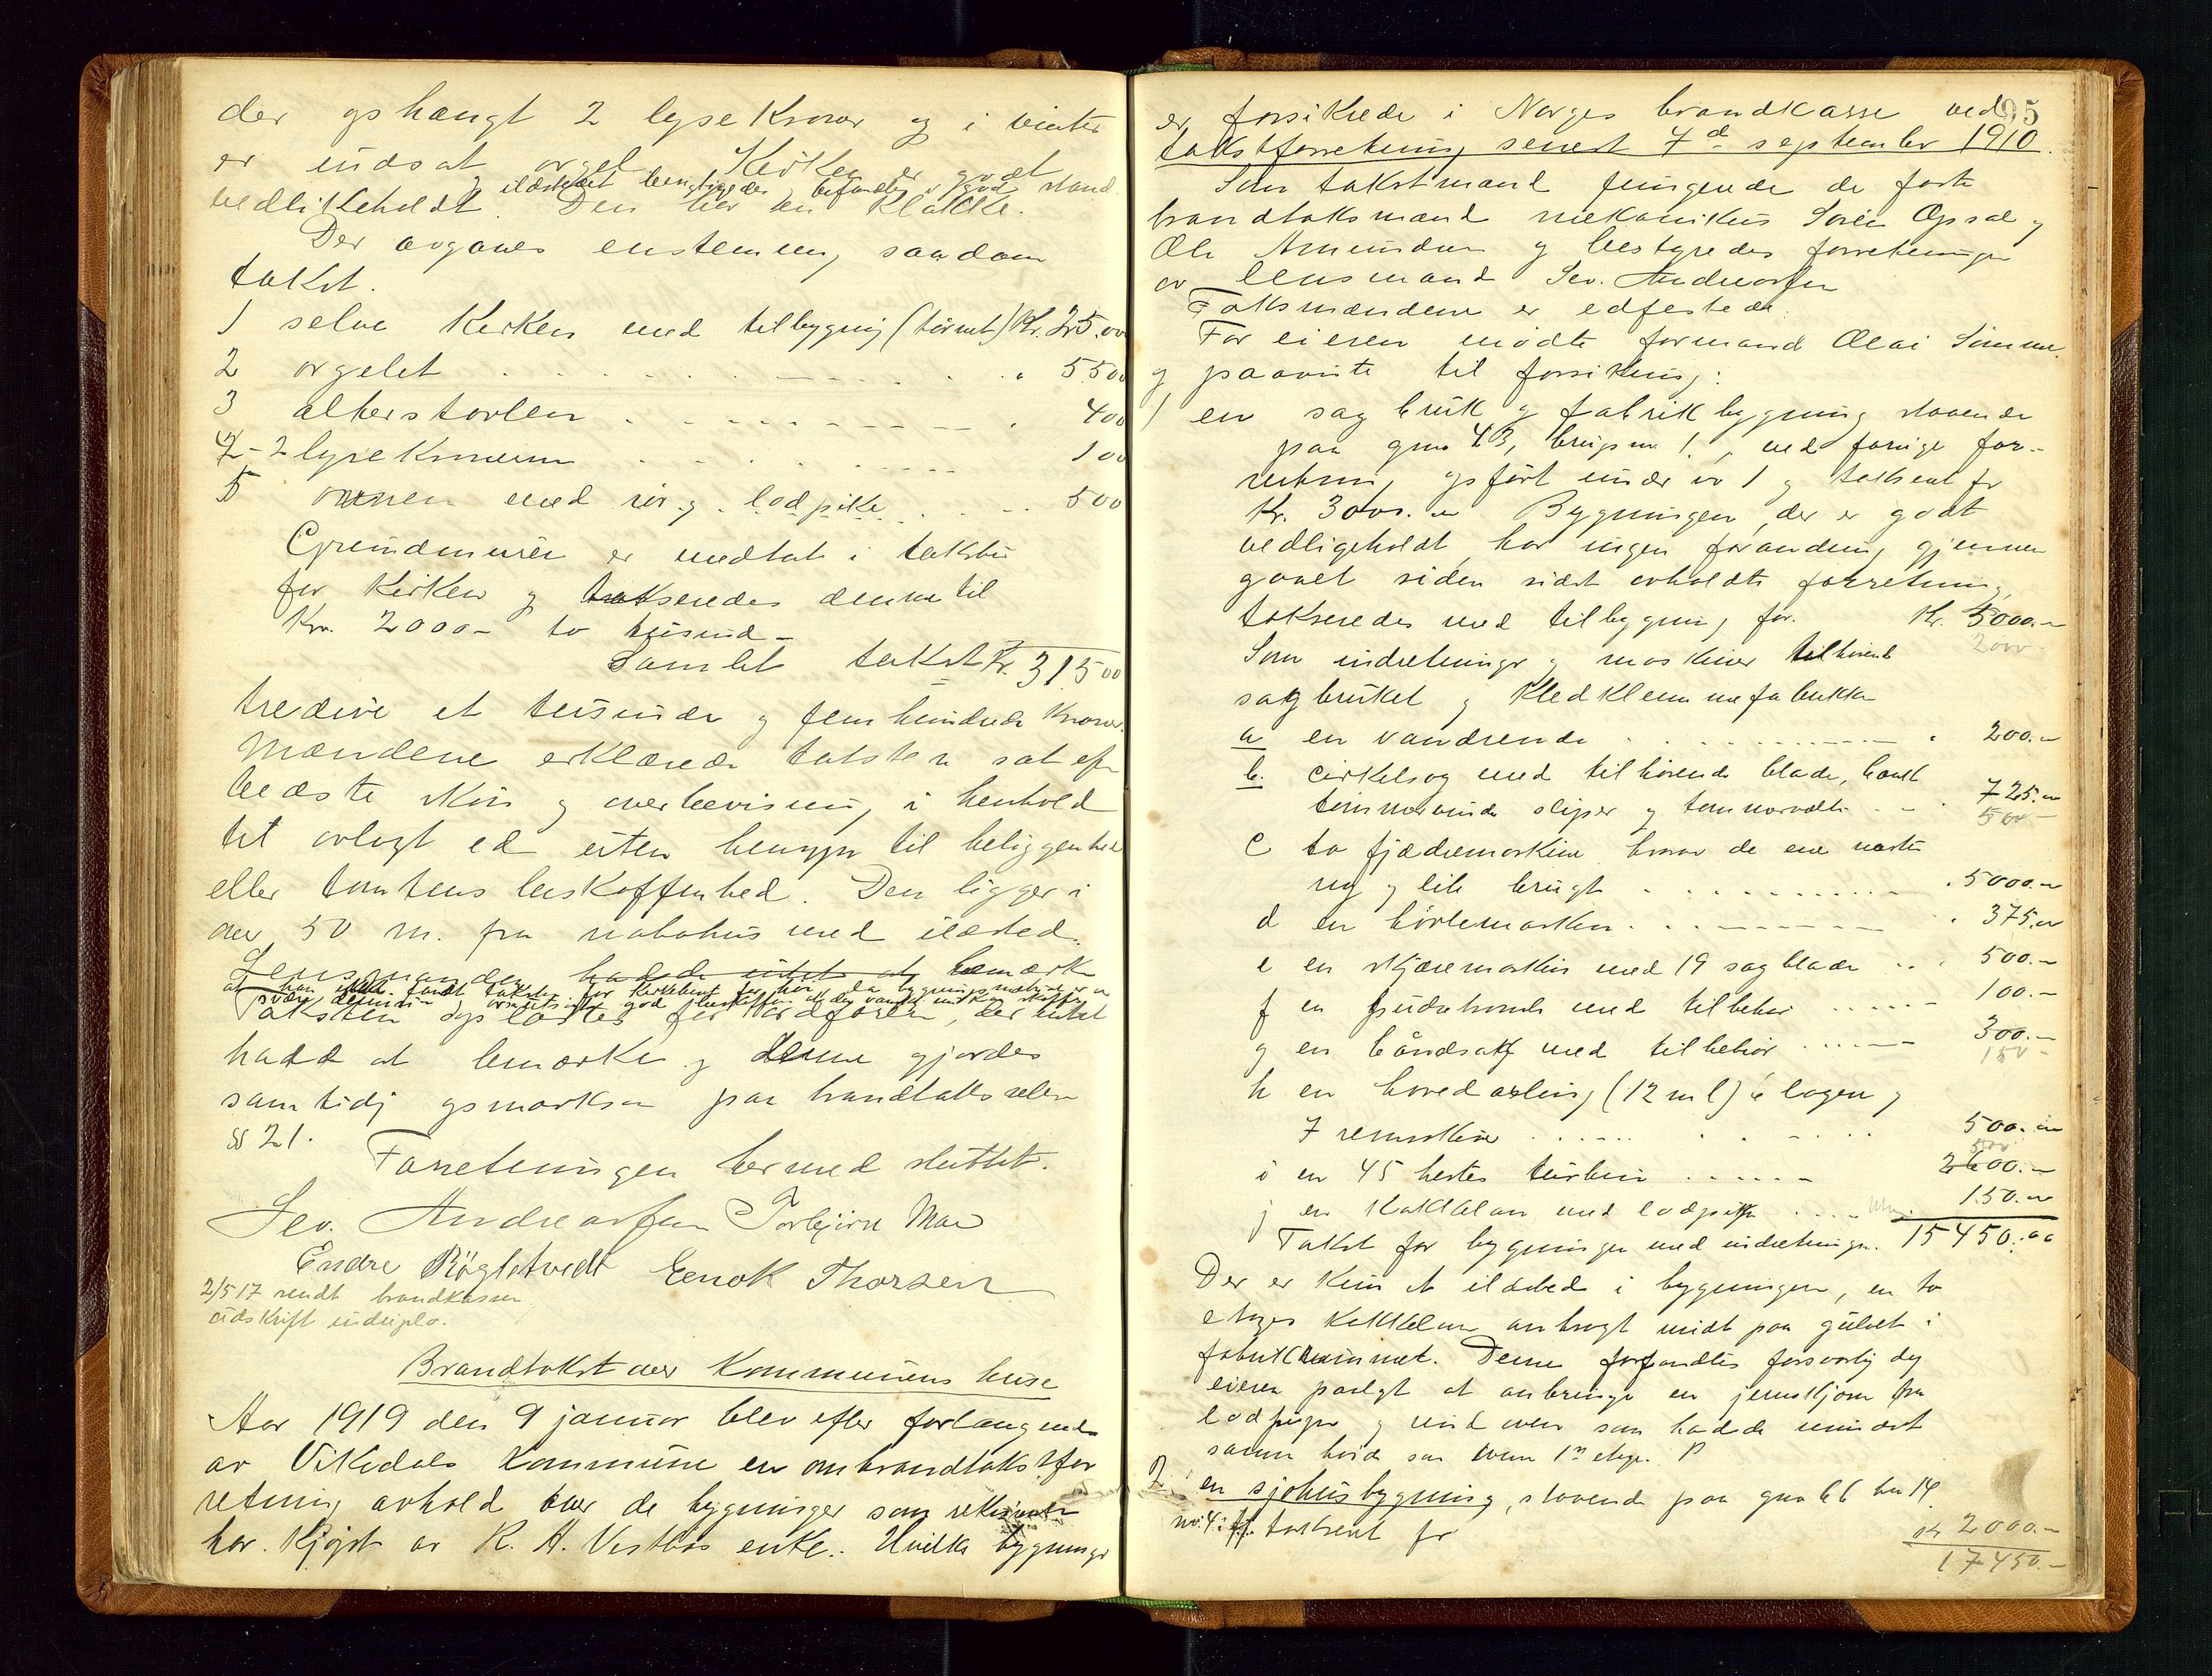 der ophængt 2 lysekroner og i vinter
er indsat orgel. Kirken er godt
og ildstedet besigtigedes, befandtes i god stand.
vedlikeholdt. Den har en klokke.
Der avgaves enstemmig saadan
takst.
1 selve kirken med tilbygning (tårnet) Kr. 25.00
2 orgelet . . . . " 5500
3 altertavlen . . . . " 400
4 - 2 lysekronerne . . . . 100
5 ovnen med rør og lodpike . . . . 500
Grundmuren er medtat i taksten
for kirken og takseredes denne til
Kr. 2000- to tusind -
Samlet takst Kr. 31500
tredive et tusinde og fem hundrede kroner.
Mændene erklærede taksten sat efter
bedste skjøn og overbevisning i henhold
til avlagt ed uten hensyn til beliggenhed
eller tomtens beskaffenhed. Den ligger i
over 50 m. fra nabohus med ildsted.
Lensmanden hadde intet at bemærke
Taksten oplæstes for ordføreren, der intet
hadde at bemærke og denne gjordes
samtidig opmerksom paa brandtakstreglen
§ 21.
Forretningen hermed sluttet.
Sev. Andreassen Torbjørn Mæ
Endre Røgletvedt Enok Thorsen
2/5 17 sendt brandkassen
utskrift
Brandtakst over kommunens huse
Aar 1919 den 9 januar blev efter forlangende
av Vikedals kommune en ombrandtakstfor
retning avhold over de bygninger som
har kjøpt av K. H. Vestbøs enke. Hvilke bygninger
95
er forsikrede i Norges brandkasse ved
takstforretning senest 7de september 1910.
Som takstmænd fungerede de faste
brandtaksmænd mekanikus Søren Opsal og
Ole Amundsen og bestyredes forretningen
av lensmand Sev. Andreassen
Taksmændene er edfestede.
For eieren mødte formand Olai Simme
og paaviste til forsikring:
1 en sagbruk og fabrikbygning staaende
paa gno 43, brugsno 1, ved forrige for-
retning opført under no 1 og takseret for
Kr. 3000.- Bygningen, der er godt
vedligeholdt har ingen forandring gjennem
gaaet siden sidst avholdte forretning,
takseredes med tilbygning for. Kr. 5000.-
2000-
Som indretninger og maskiner tilhørende
sagbruket og klædklemmefabrikken
a en vandrende . . . . " 200.-
b. cirkelsag med tilhørende blade, bænk
tømmervinde sliper og tømmervalte . . . 725.-
500-
c to fjædremaskine hvorav de ene næsten
ny og lite brugt . . . . " 5000.-
d en børlemaskin . . . . " 375.-
e en skjæremaskin med 19 sagblade . . . 500.-
f en pudsetromle med tilbehør . . . . 100.-
g en båndsag med tilbehør . . . . 300.-
150-
h en hovedaxling (12 m l) 6 lagere og
7 remskiver . . . . 500.-
500
i en 45 hestes turbin . . . . 2600.-
j en kakkelovn med lodpipe . . . . 150.-
Takst for bygninger med indretninger. 15450.00
Der er kun et ildsted i bygningen, en to
etages kakkelovn anbragt midt paa gulvet i
fabrikrummet. Denne forfandtes forsvarlig dog
eieren paalagt at anbringe en jernskjærm fra
lodpipen og rundt ovnen som hadde mindst
samme høide som ovnens 1ste etage.
2. en sjøhusbygning, staaende paa gno 66 bno 14.
no. 4. takseret for Kr 2000.-
17450.-